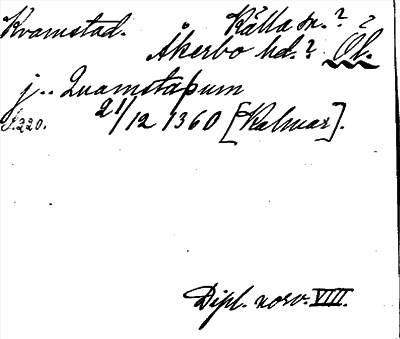 Kvamstad. Källa sn.? ?
Åkerbo hd.? Öl.
j.. Quamstaþum
S.220. 21/12 1360 [Kalmar].
Dipl. norv. VIII.